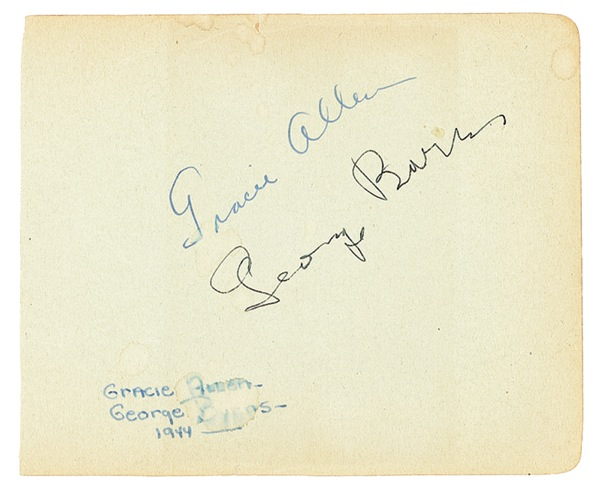 Gracie Allen
George Burns
GRACIE Allen-
George Burns-
1944